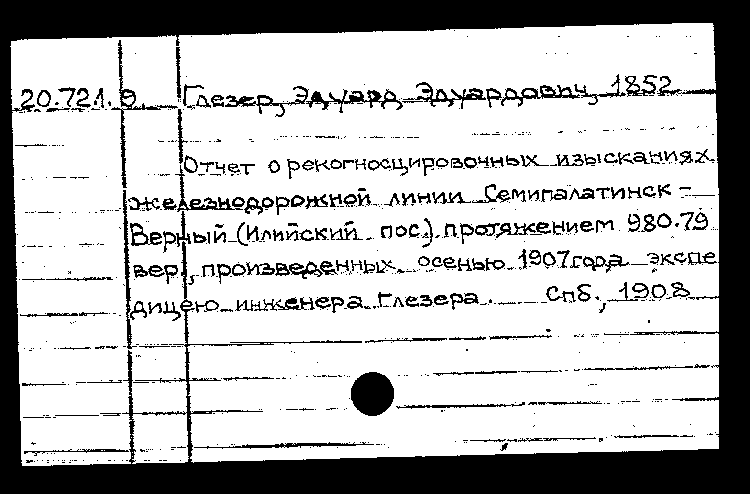 20.721.9. Глезер, Эдуард Эдуардович, 1852
Отчет о рекогносцировочных изысканиях
железнодорожной линии Семипалатинск -
Верный (Илийский пос.) протяжением 980.79
вер., произведенных осенью 1907 года экспе
дицею инженера Глезера. Спб., 1908